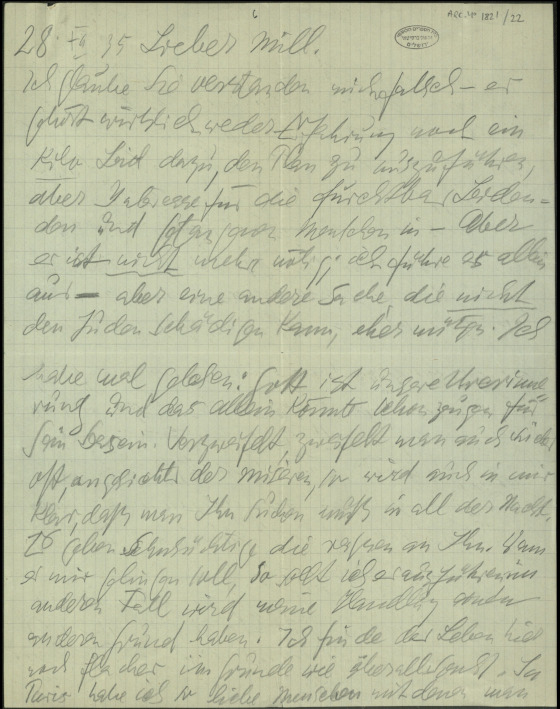 6
ARC. 4° 1821/22
28. IV 35 Lieber Mill.
Ich glaube Sie verstanden mich falsch – es
gehört wirklich weder Erfahrung noch ein
Kilo Leid dazu, den Plan zu auszuführen,
aber Interesse für die furchtbar Leiden-
den und Menschen in – Aber
es ist nicht mehr nötig; ich führe es allein
aus – aber eine andere Sache die nicht
den Juden schädigen kann, eher nützen. Ich
habe mal gelesen: Gott ist unsere Urerinne
rung und das allein könnte schon zeugen für
Sein Dasein. Verzweifelt, zweifelt man auch
oft, angesichts der Misèren, so wird auch in mir
klar, daß man Ihn suchen muß in all der Nacht.
Es geben Sehnsüchtige die an Ihn. Wenn
es mir gelingen soll, so
anderen Fall wird meine Handlung
anderen Grund haben. Ich finde das Leben hier
noch flacher im Grunde wie überall sonst. In
Paris habe ich so liebe Menschen mit denen man